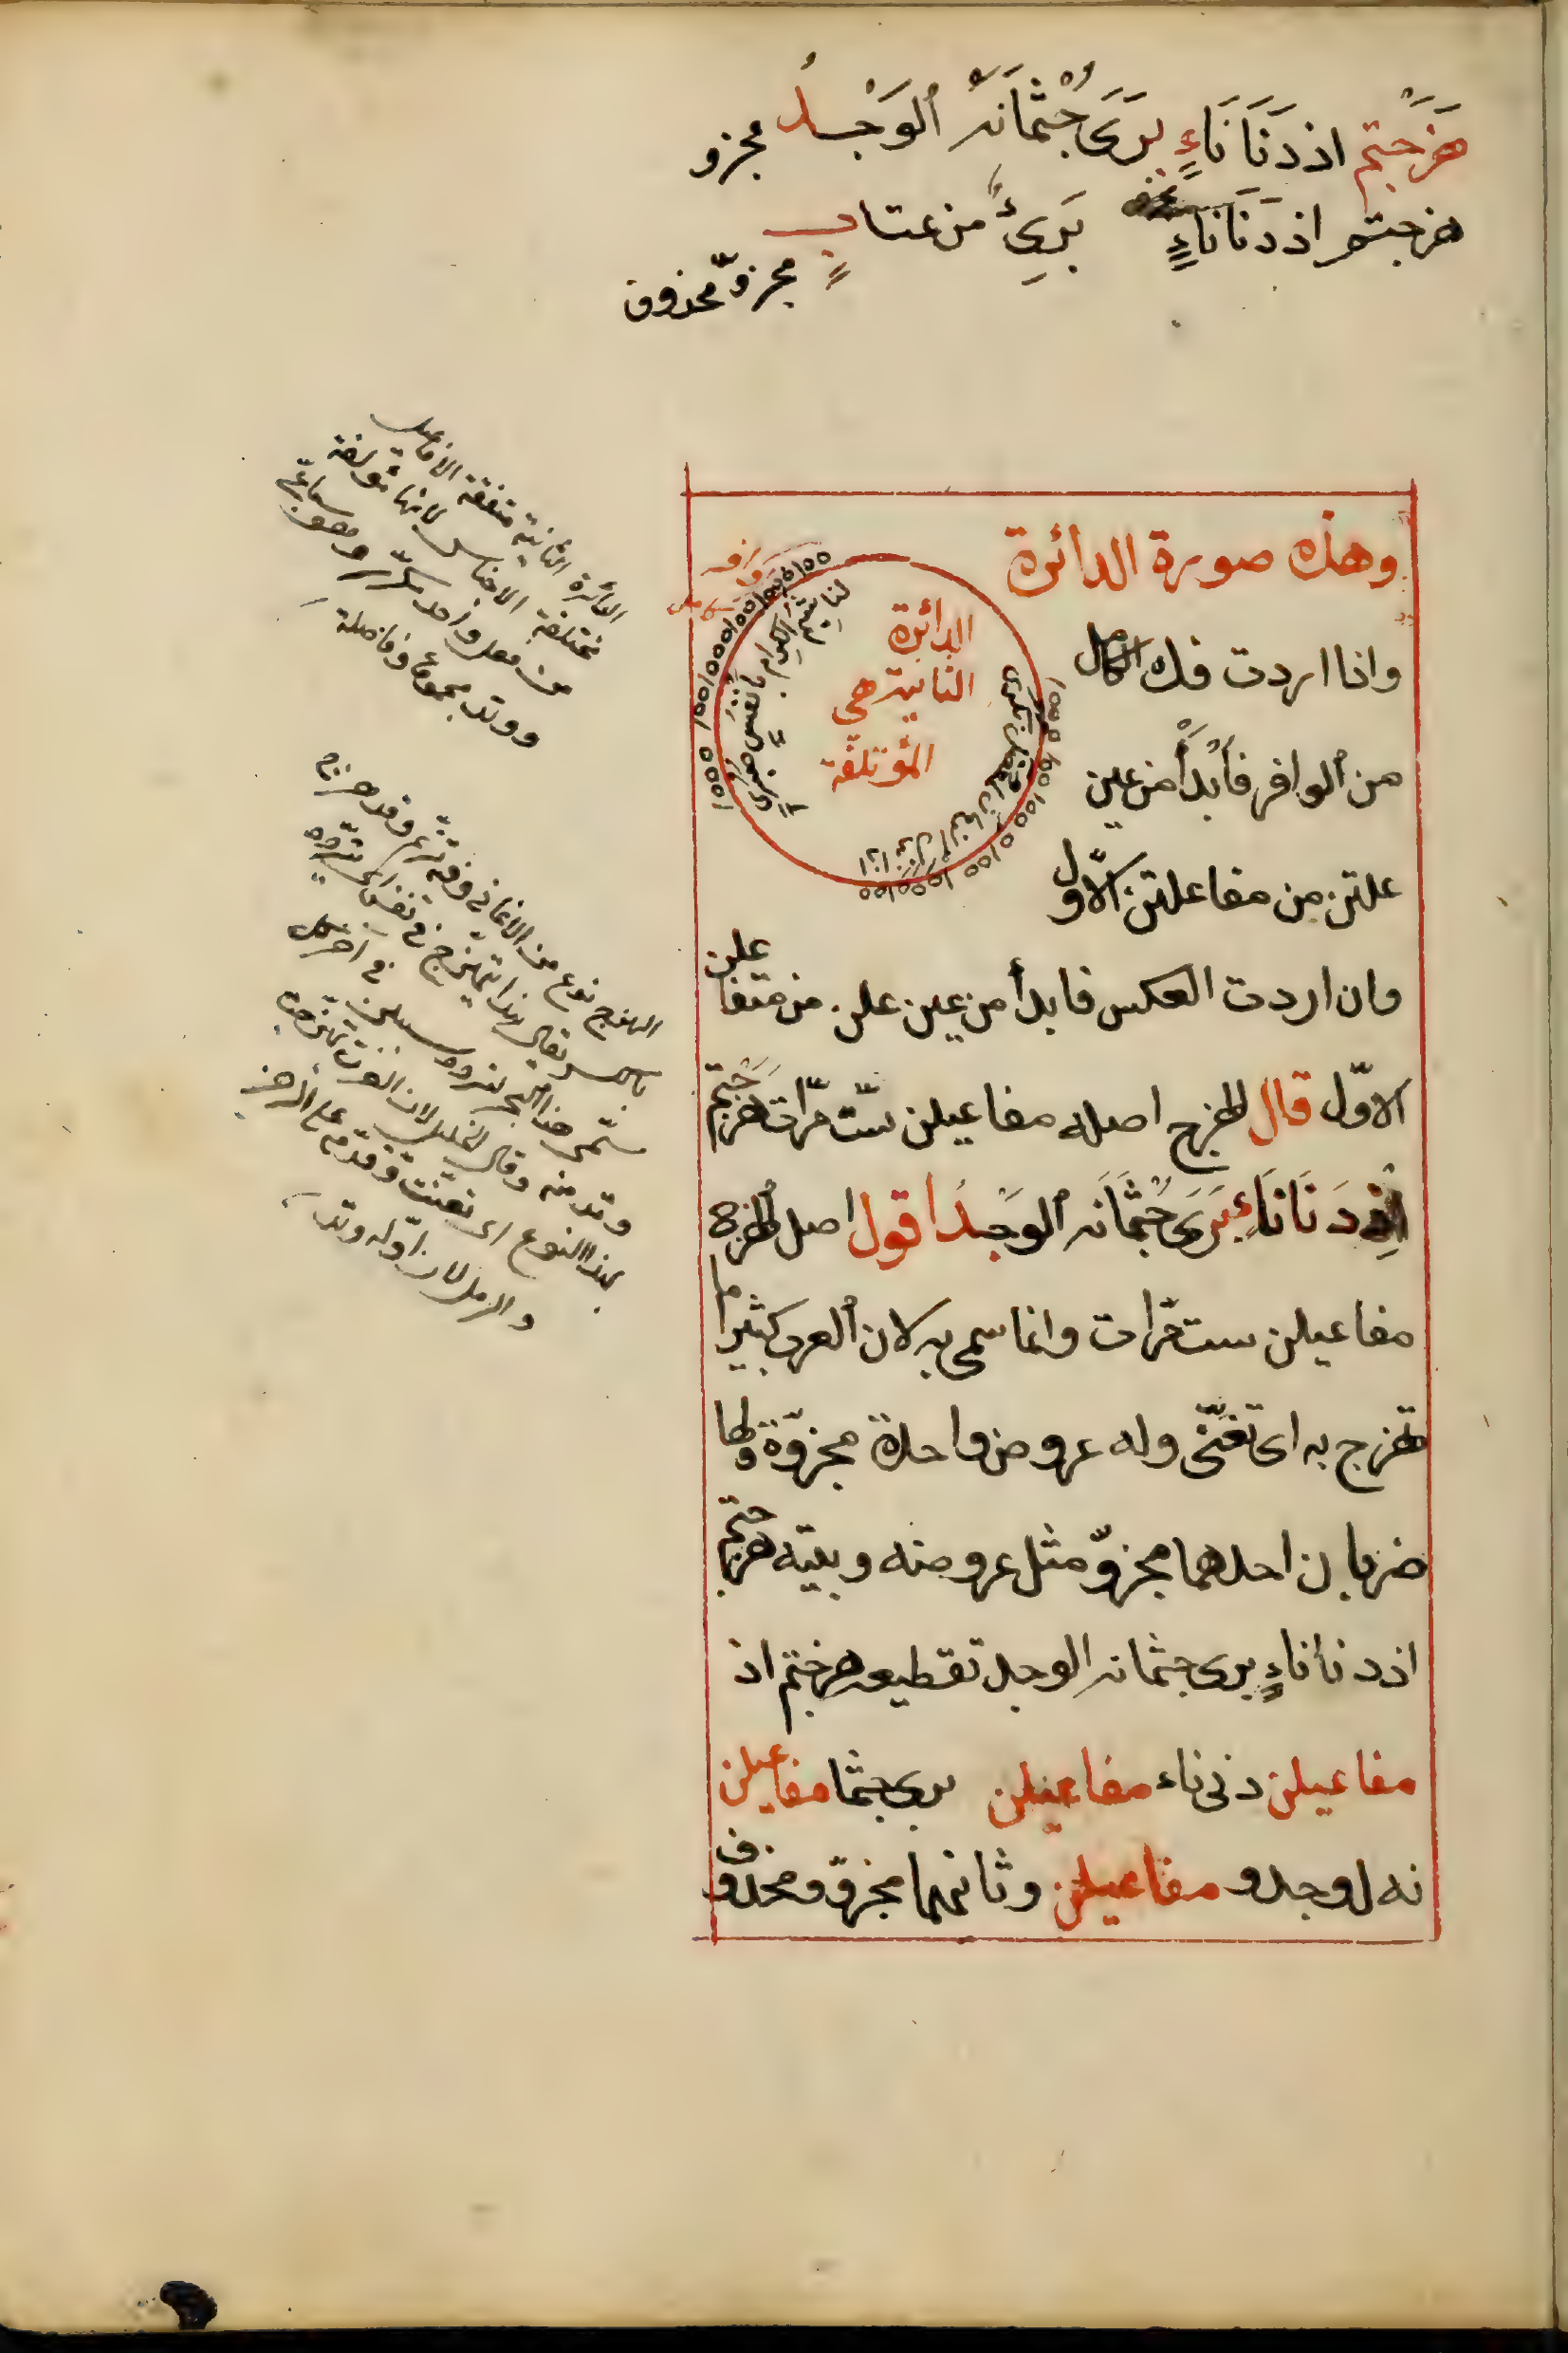 هَزَجْتم اذ دَنَا نَاءٍ يَرَى جُثْمَانَهُ ٱلوَجْدُ مجزو
هزجتم اذ دَنَا نَاءٍ بَرِئٌ من عتابٍ
مجزوّ محذوف
وهذه صورة الدائرة
الدائرة
الثانية هي
المؤتلفة
وافر
كامل
واذا اردت فك الكامل
من ٱلوافر فأبدأ من عين
علتن من مفاعلتن الاوّل
وان اردت العكس فابدأ من عين علن من متفاعلن
الاوّل قال الهزج اصله مفاعيلن ستّ مرّات هزجتم
اذ دَنَا نَاءٍ يَرَى جُثمَانَه ٱلوَجدُ اقول اصل الهزج
مفاعيلن ست مرّات وانما سمى به لان ٱلعرب كثيرا ما
تهزج به اى تغنّى وله عروض واحدة مجزوّة ولها
ضربان احدهما مجزوّ مثل عروضه وبيته هزجتم
اذ دنا ناءٍ يرى جثمانه الوجد تقطيعه هزجتم اذ
مفاعيلن دنى ناء مفاعيلن يرى جثما مفاعيلن
نه لوجدو مفاعيلن وثانيهما مجزوّ ومحذوف
الدائرة الثانية متفقة الافاعيل
مختلفة الاجناس لانها مؤلفة
من واحد مكرّر وهو سباعىّ
ووتد مجموع وفاصلة
الهزج نوع من الاغانى وفيه ترنّم وقد هزج
بالكسر يقال تهزج فى اى
سمّى هذا البحر فى آخر كل
وتد منه وقال الخليل لان العرب تهزج
بهذا النوع اى تغنّت وقدّم على الرجز
والرمل لان اوله وتد